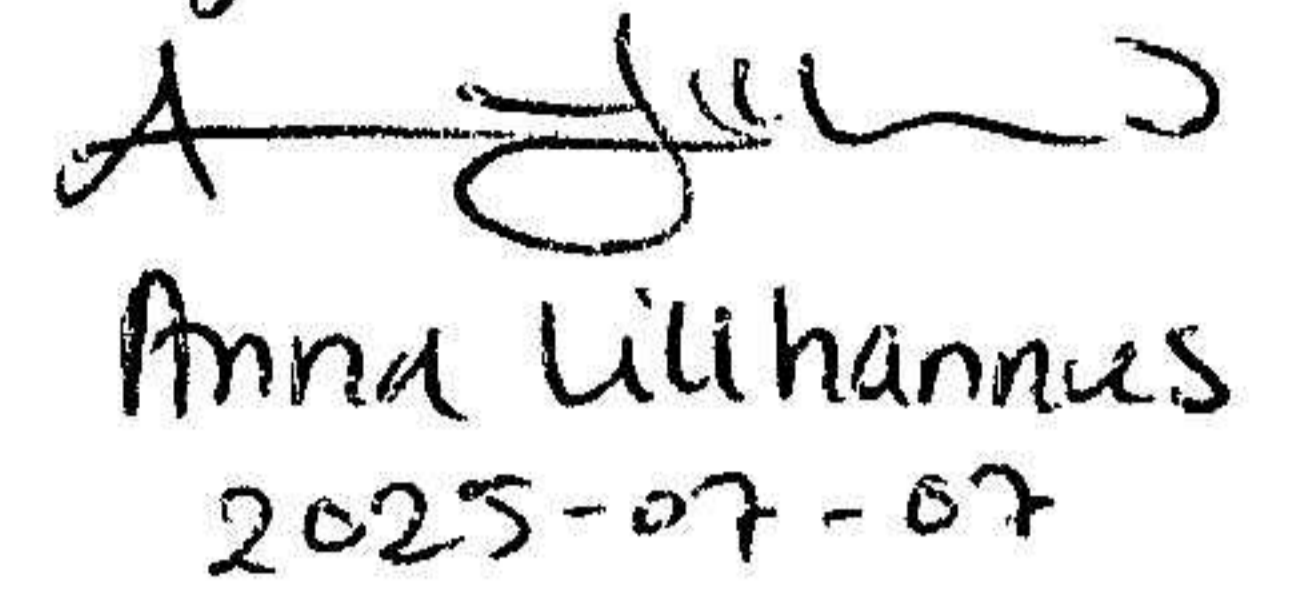 Anna Lillhannus
2025-07-07